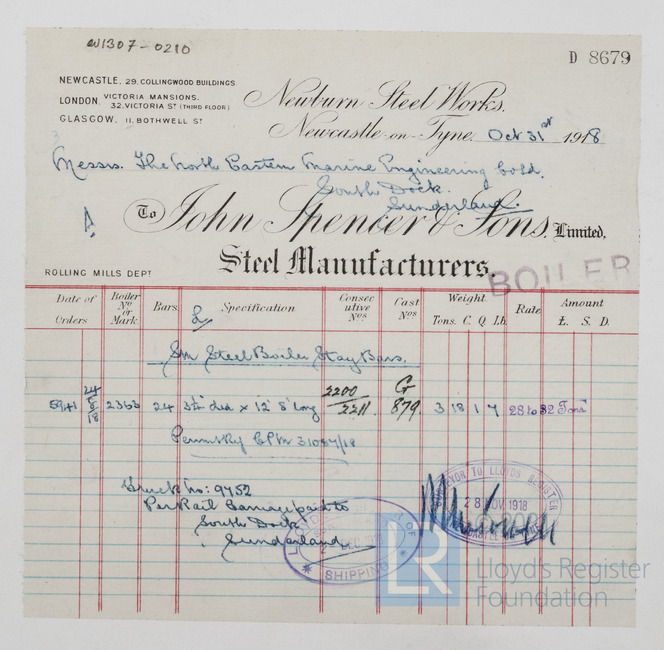 W1307-0210
D 8679
NEWCASTLE, 29, COLLINGWOOD BUILDINGS
LONDON, VICTORIA MANSIONS,
32, VICTORIA ST (THIRD FLOOR)
GLASGOW, 11, BOTHWELL ST
Newburn Steel Works,
Newcastle-on-Tyne, Oct 31st 1918
Messrs. The North Eastern Marine Engineering Co Ld,
South Dock.
Sunderland.
To John Spencer & Sons, Limited,
Steel Manufacturers.
ROLLING MILLS DEPT
BOILER
Date of Orders Boiler No or Mark Bars Specification Consecutive Nos Cast Nos Weight Tons. C. Q. lb. Rate Amount £. S. D.
SM Steel Boiler Stay Bars.
2200 G
24 12' 8" long 2211 879 3 18 1 7 28 to 32 Tons
Truck No: 9752
Per Rail Carriage paid to
South Dock
Sunderland
SURVEYOR TO LLOYDS REGISTER
28 NOV 1918
SHIPPING
LR Lloyd's Register
Foundation